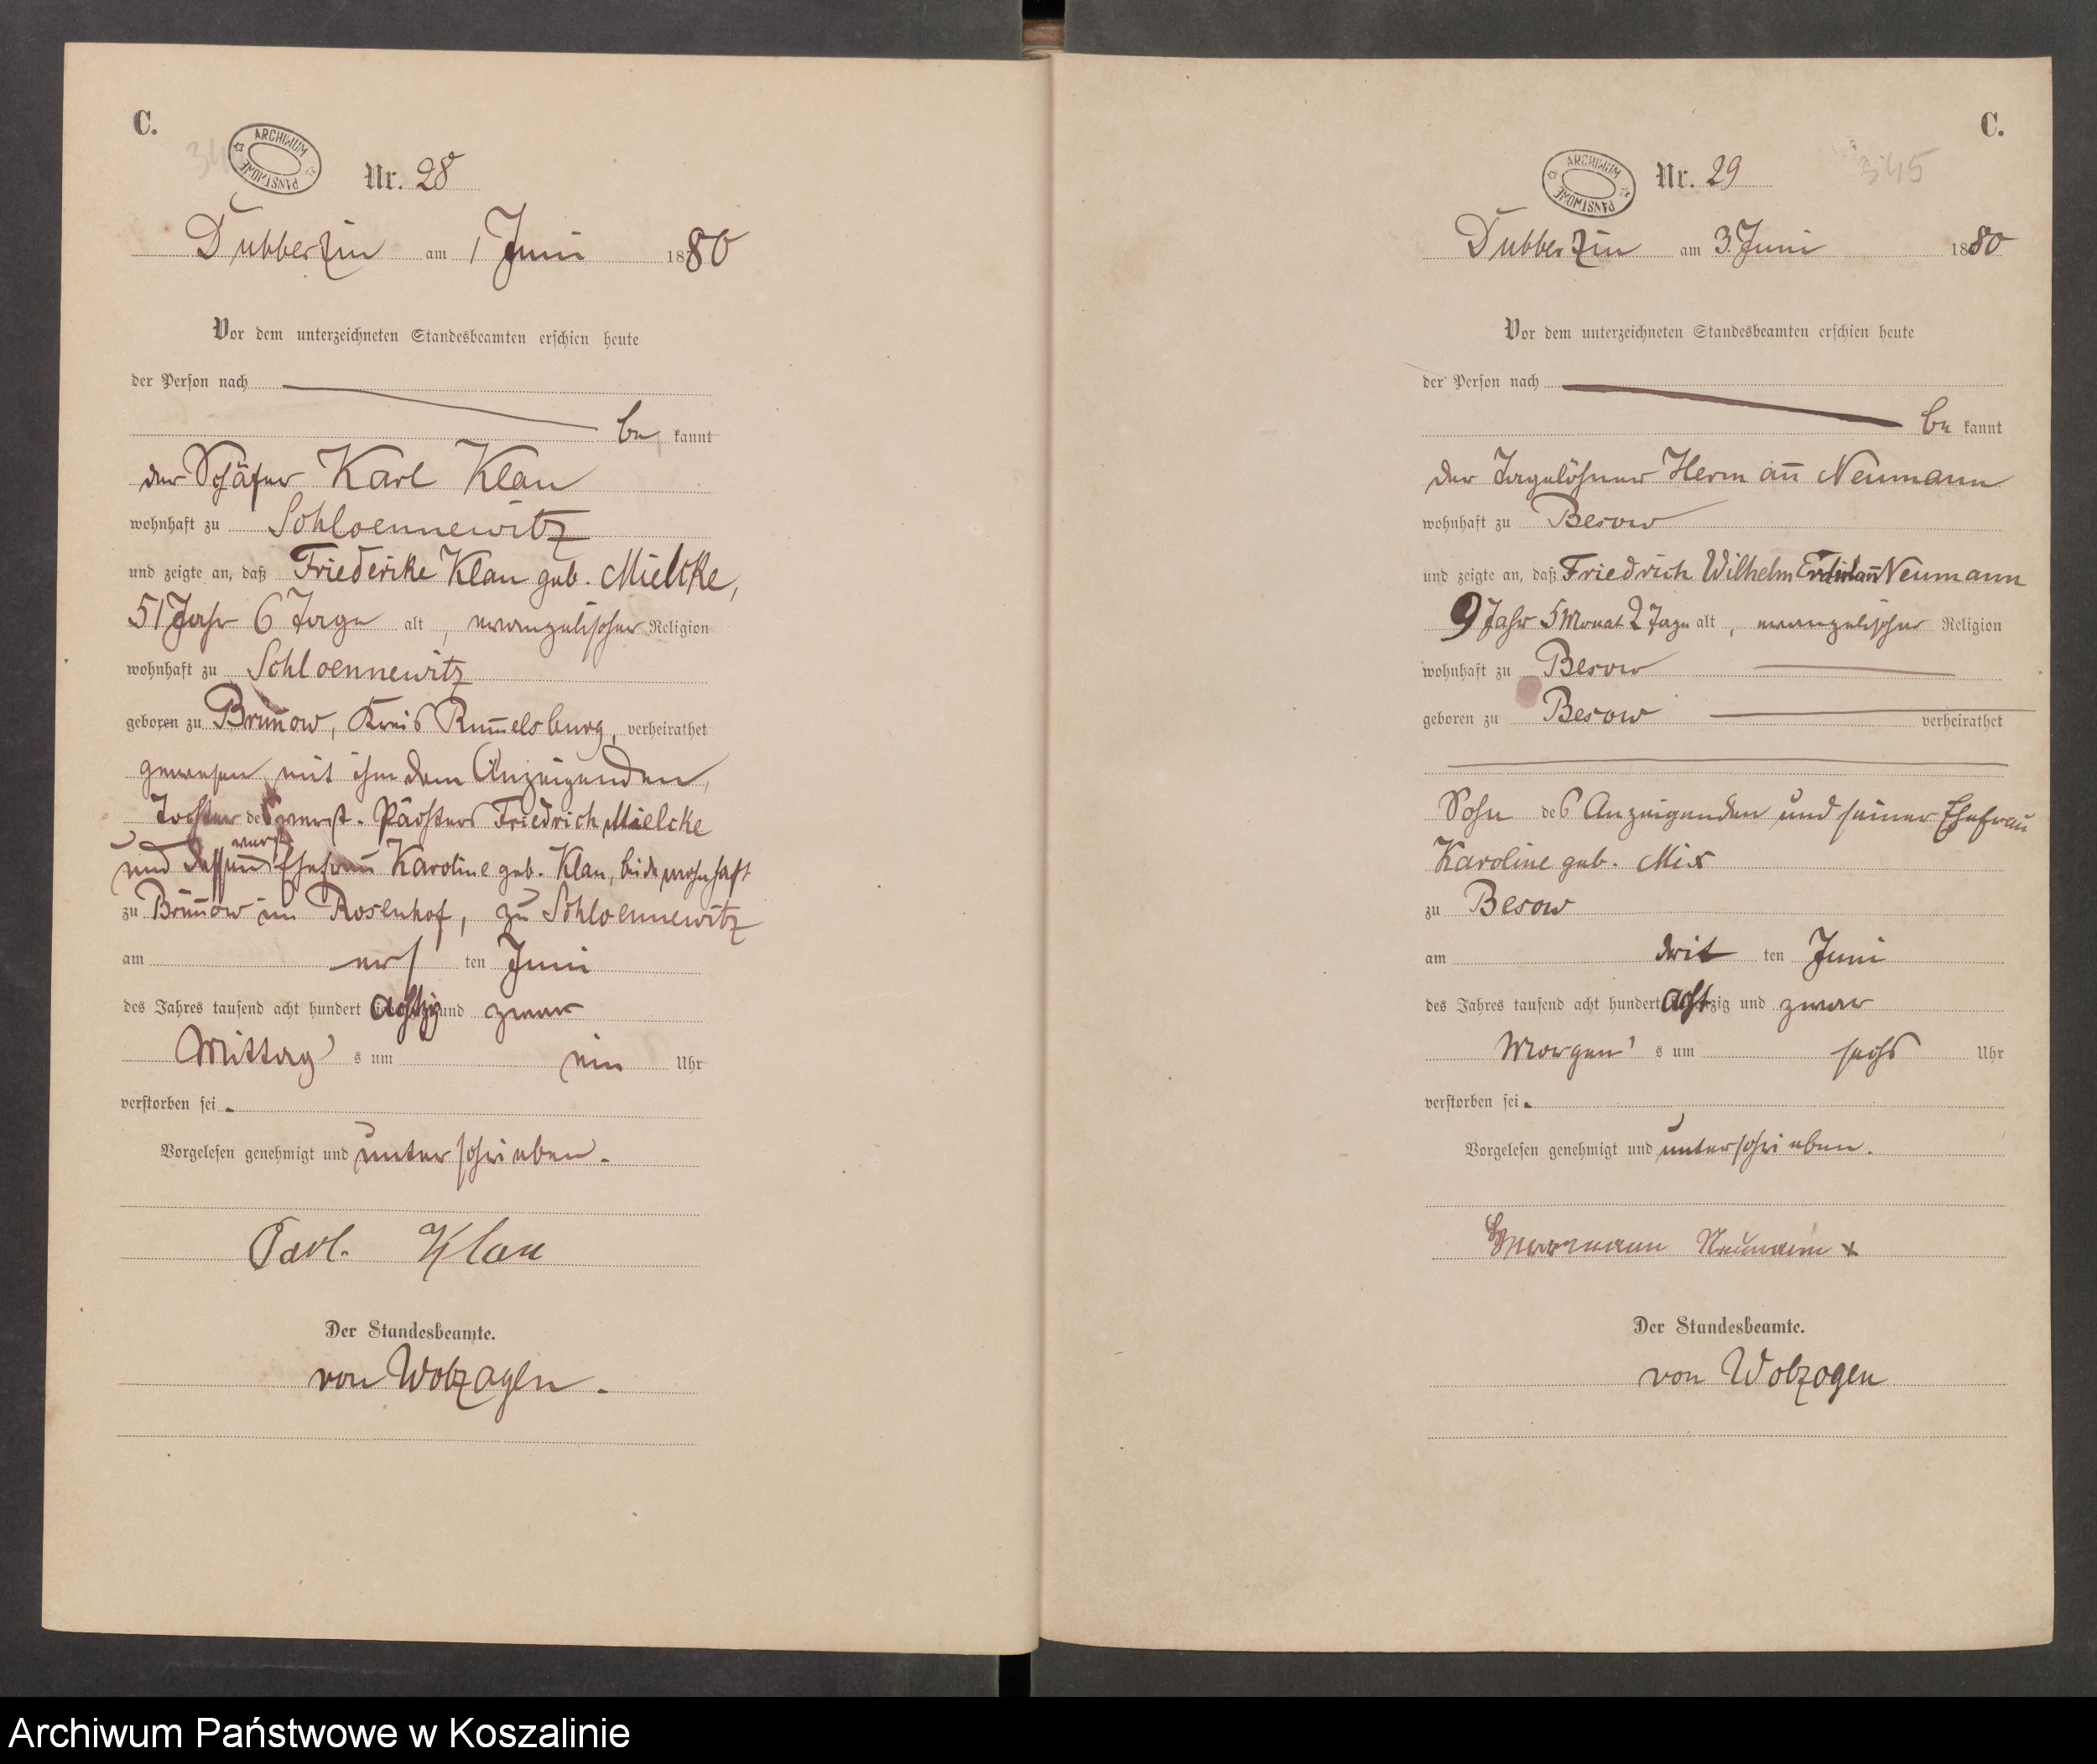 C.
ARCHIWUM PAŃSTWOWE
Nr. 28
Dubberzin am 1 Juni 1880
Vor dem unterzeichneten Standesbeamten erschien heute
der Person nach
be kannt
der Schäfer Karl Klau
wohnhaft zu Schloennewitz
und zeigte an, daß Friederike Klau geb. Mieltke,
51 Jahr 6 Tage alt, evangelischer Religion
wohnhaft zu Schloennewitz
geboren zu Brünnow, Kreis Rummelsburg, verheirathet
gewesen mit ihm dem Anzeigenden,
Tochter des verst. Pächters Friedrich Mielcke
verst.
und dessen Ehefrau Karoline geb. Klau, beide wohnhaft
zu Brünnow im Rosenhof, zu Schloennewitz
am ers ten Juni
des Jahres tausend acht hundert achtzig und zwar
Mittag s um ein Uhr
verstorben sei.
Vorgelesen genehmigt und unterschrieben.
Carl. Klau
Der Standesbeamte.
von Wolzogen.
C.
ARCHIWUM PAŃSTWOWE
Nr. 29
345
Dubberzin am 3. Juni 1880
Vor dem unterzeichneten Standesbeamten erschien heute
der Person nach
be kannt
der Tagelöhner Hermann Neumann
wohnhaft zu Besow
und zeigte an, daß Friedrich Wilhelm Neumann
9 Jahr 5 Monat 2 Tage alt, evangelischer Religion
wohnhaft zu Besow
geboren zu Besow verheirathet
Sohn des Anzeigenden und seiner Ehefrau
Karoline geb. Mix
zu Besow
am drit ten Juni
des Jahres tausend acht hundert achtzig und zwar
Morgen s um sechs Uhr
verstorben sei.
Vorgelesen genehmigt und unterschrieben.
Herrmann Neumann
Der Standesbeamte.
von Wolzogen
Archiwum Państwowe w Koszalinie